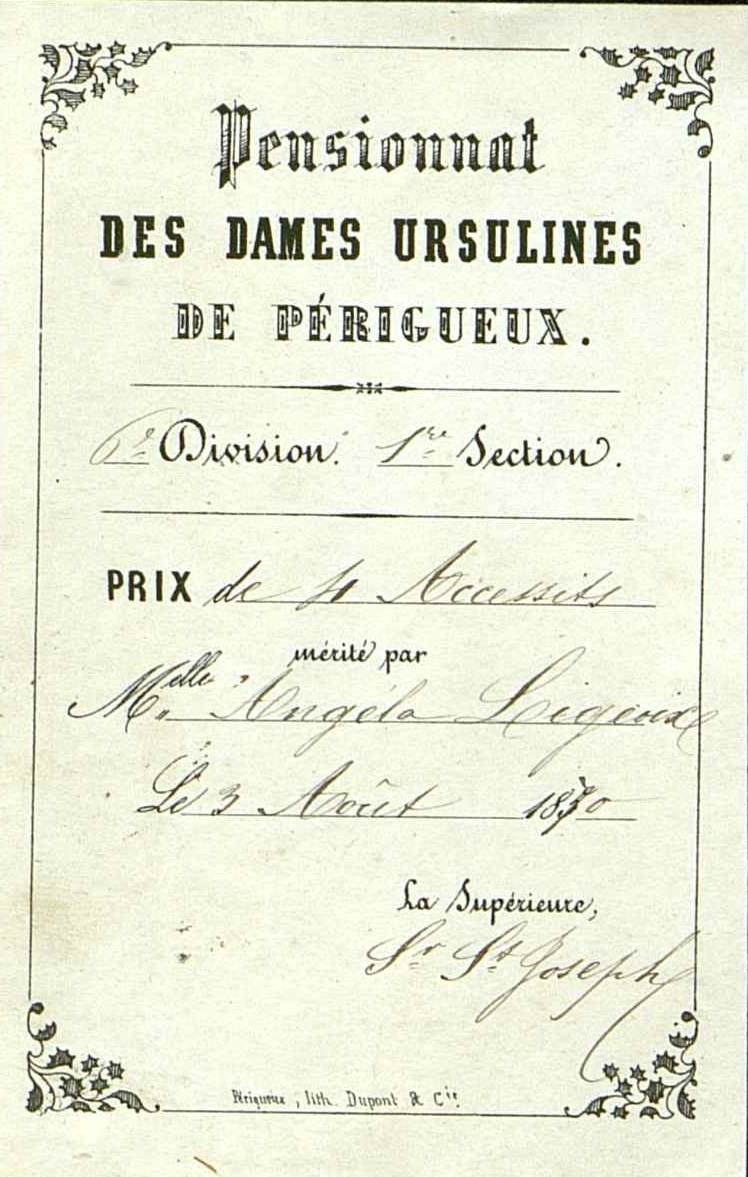 Pensionnat
DES DAMES URSULINES
DE PÉRIGUEUX.
6e Division. 1re Section.
PRIX de 4 Accessits
mérité par
Melle Angéla
Le 3 Août 1870
La Supérieure,
Sr St Joseph
Périgueux, lith. Dupont & Cie.